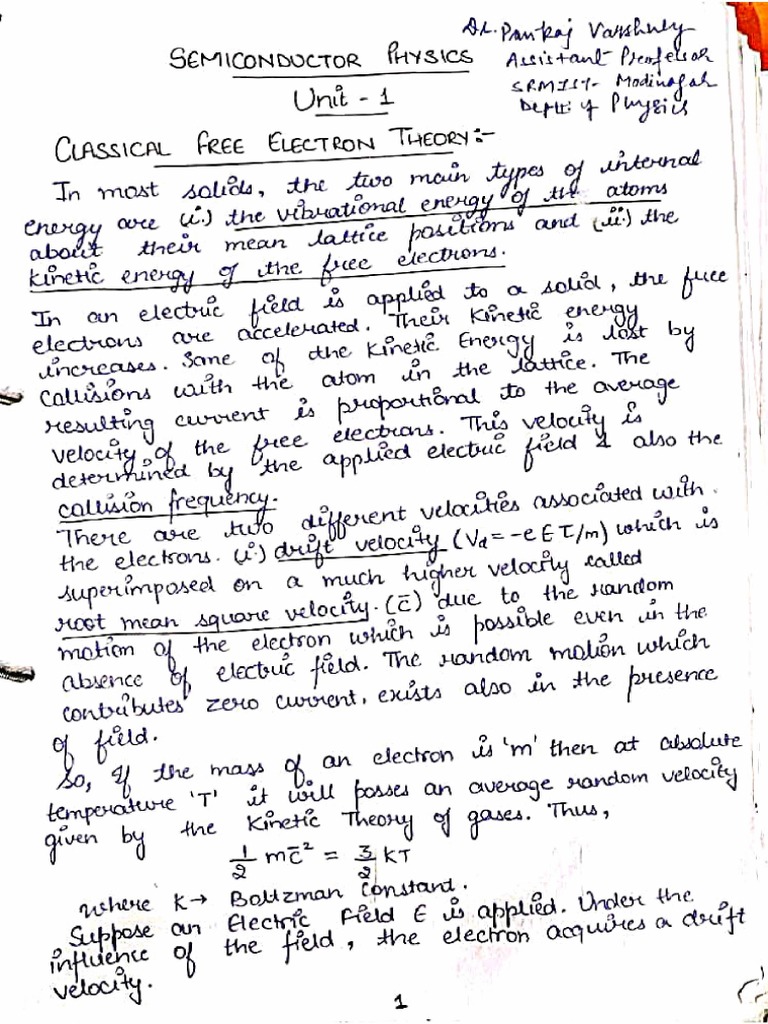 Dr. Pankaj Varshney
SEMICONDUCTOR PHYSICS
Assistant Professor
SRMIST- Modinagar
Unit - 1
Deptt. of Physics
CLASSICAL FREE ELECTRON THEORY:-
In most solids, the two main types of internal
energy are (i.) the vibrational energy of the atoms
about their mean lattice positions and (ii.) the
kinetic energy of the free electrons.
In an electric field is applied to a solid, the free
electrons are accelerated. Their Kinetic energy
increases. Some of the Kinetic Energy is lost by
collisions with the atom in the lattice. The
resulting current is proportional to the average
velocity of the free electrons. This velocity is
determined by the applied electric field & also the
collision frequency.
There are two different velocities associated with
the electrons. (i) drift velocity (Vd = -eEτ/m) which is
superimposed on a much higher velocity called
root mean square velocity. (c̄) due to the random
motion of the electron which is possible even in the
absence of electric field. The random motion which
contributes zero current, exists also in the presence
of field.
So, If the mass of an electron is 'm' then at absolute
temperature 'T' it will posses an average random velocity
given by the Kinetic Theory of gases. Thus,
1/2 mc̄² = 3/2 KT
where K → Boltzman Constant.
Suppose an Electric Field E is applied. Under the
influence of the field, the electron acquires a drift
velocity.
1